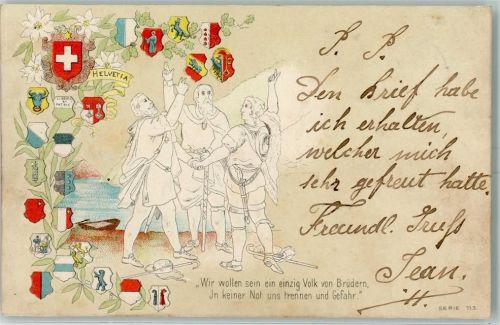 HELVETIA
LIBERTÉ
ET
PATRIE
P. P.
Den Brief habe
ich erhalten,
welcher mich
sehr gefreut hatte.
Freundl. Gruss
Jean.
"Wir wollen sein ein einzig Volk von Brüdern,
In keiner Not uns trennen und Gefahr."
SERIE 113